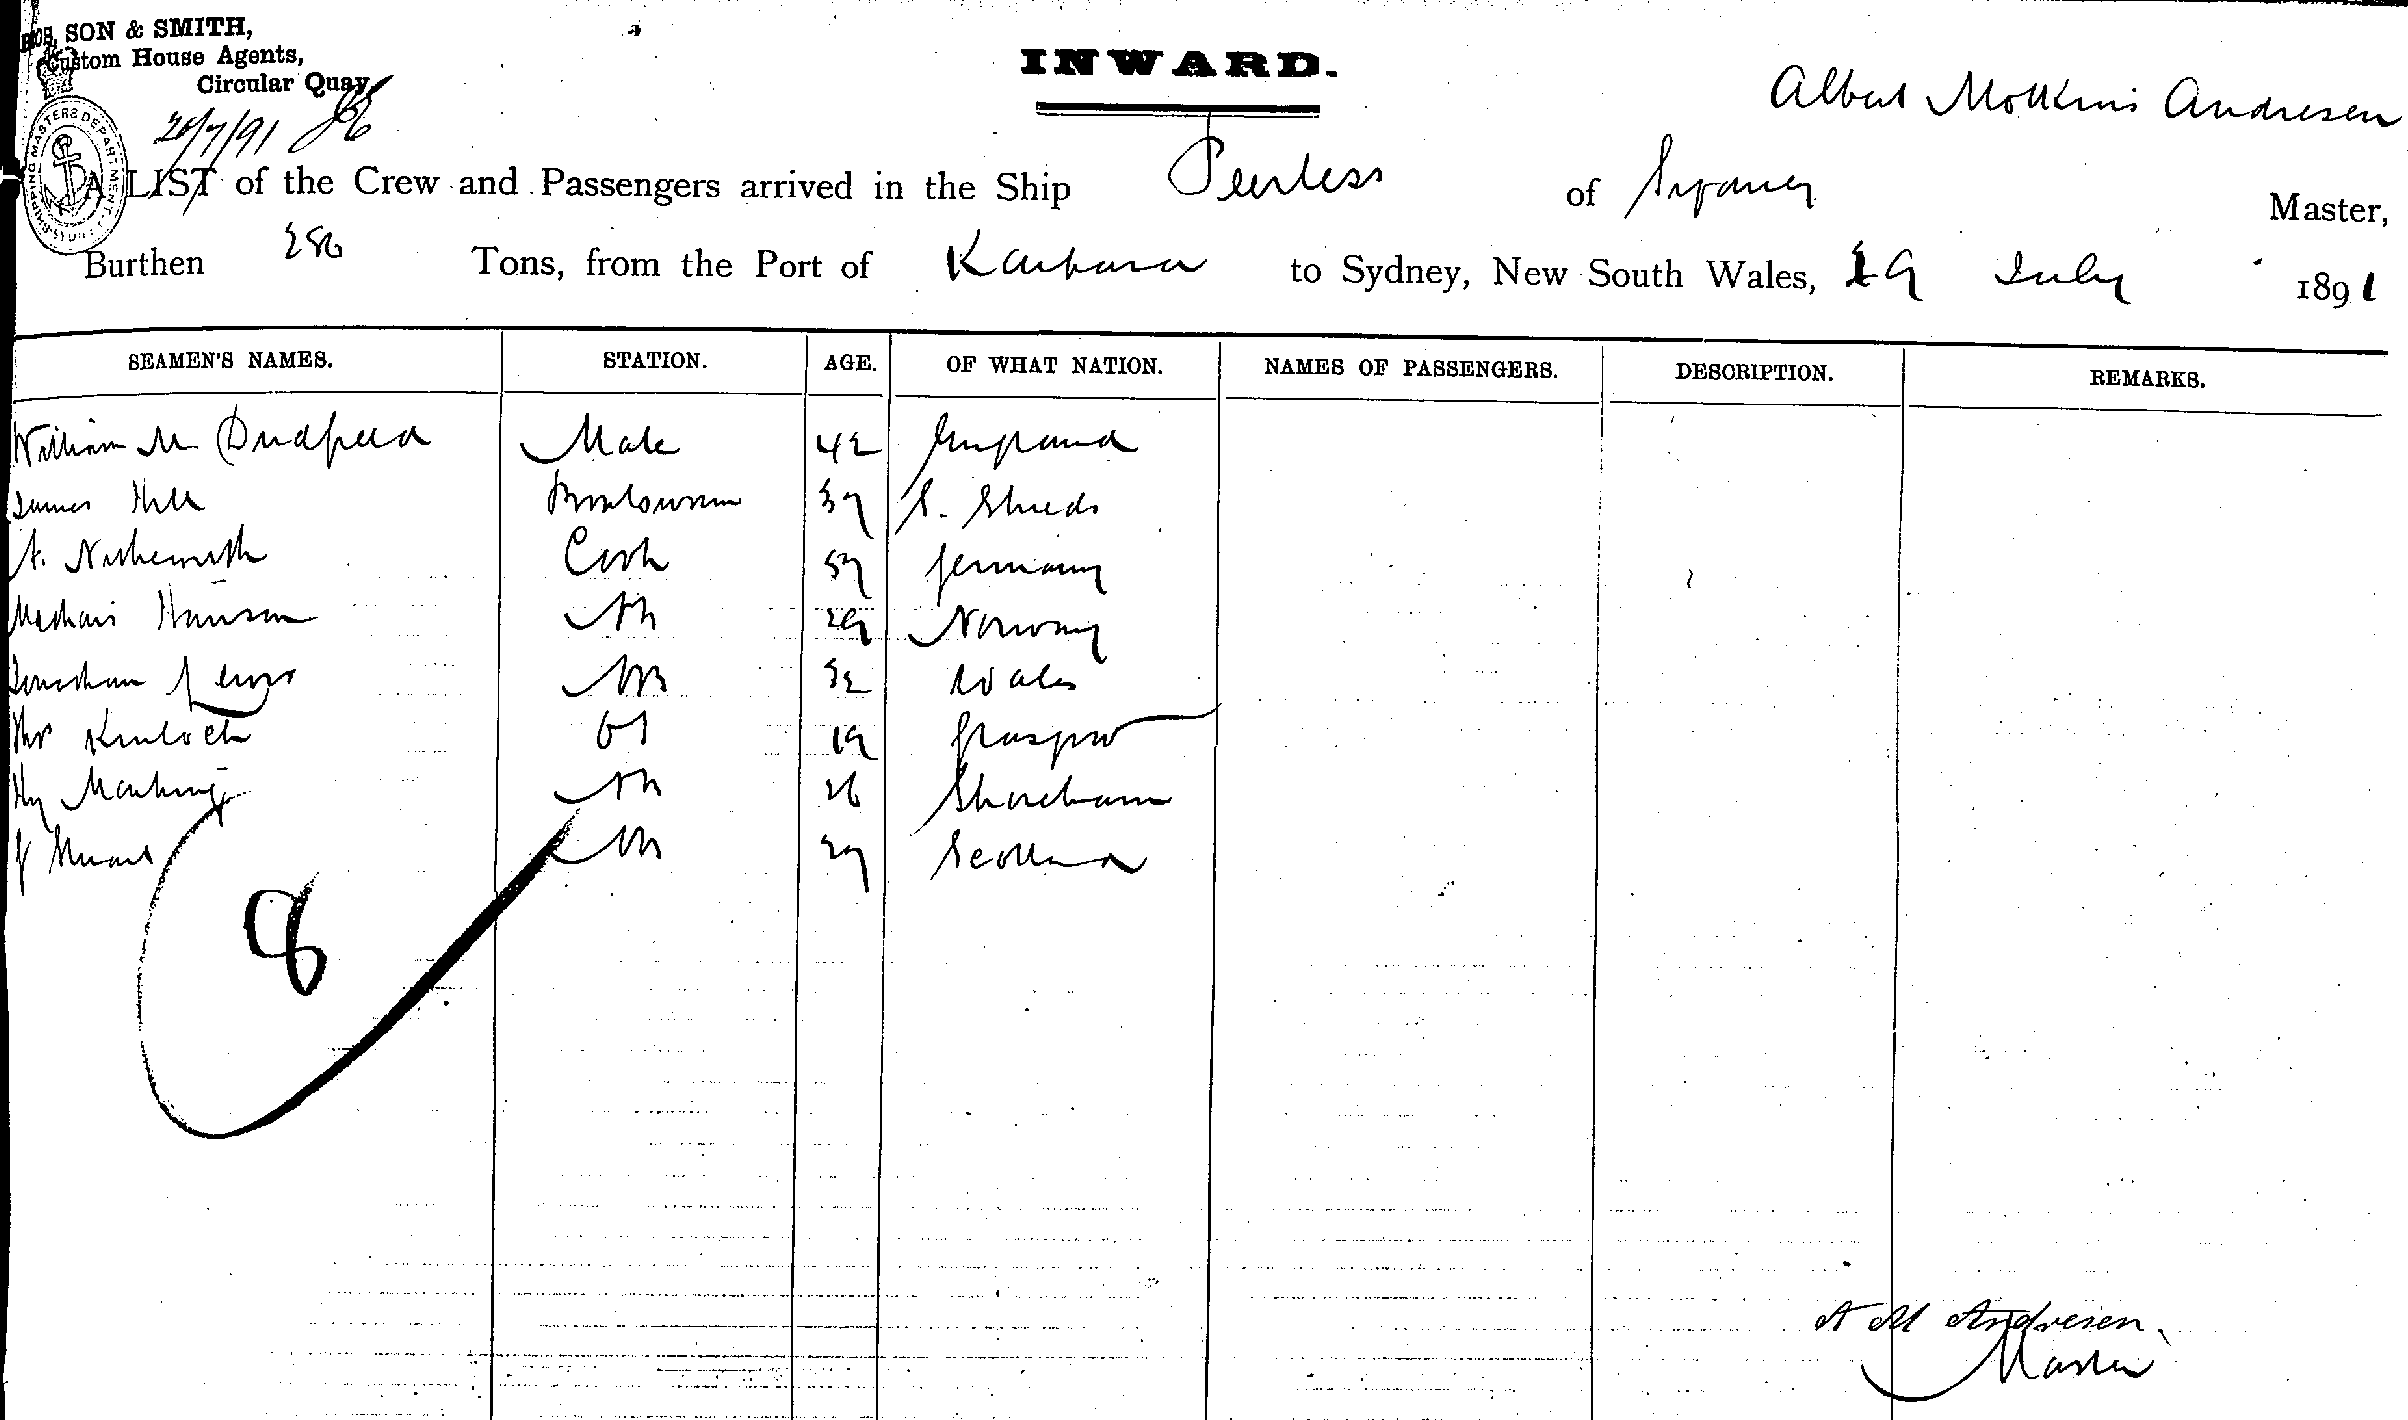 SON & SMITH,
Custom House Agents,
Circular Quay
20/7/91
INWARD.
Albert Andresen
A LIST of the Crew and Passengers arrived in the Ship Peerless of Sydney Master,
Burthen Tons, from the Port of to Sydney, New South Wales, 19 July 1891
SEAMEN'S NAMES. STATION. AGE. OF WHAT NATION. NAMES OF PASSENGERS. DESCRIPTION. REMARKS.
William M Mate 42 England
James Hill 37 S. Shields
A. Cook 57 Germany
Hansen AB 29 Norway
Jonathan Lewis AB 32 Wales
Kinloch OS 19 Glasgow
Hy AB 26 Shoreham
J Stuart AB 27 Scotland
8
A M Andresen
Master